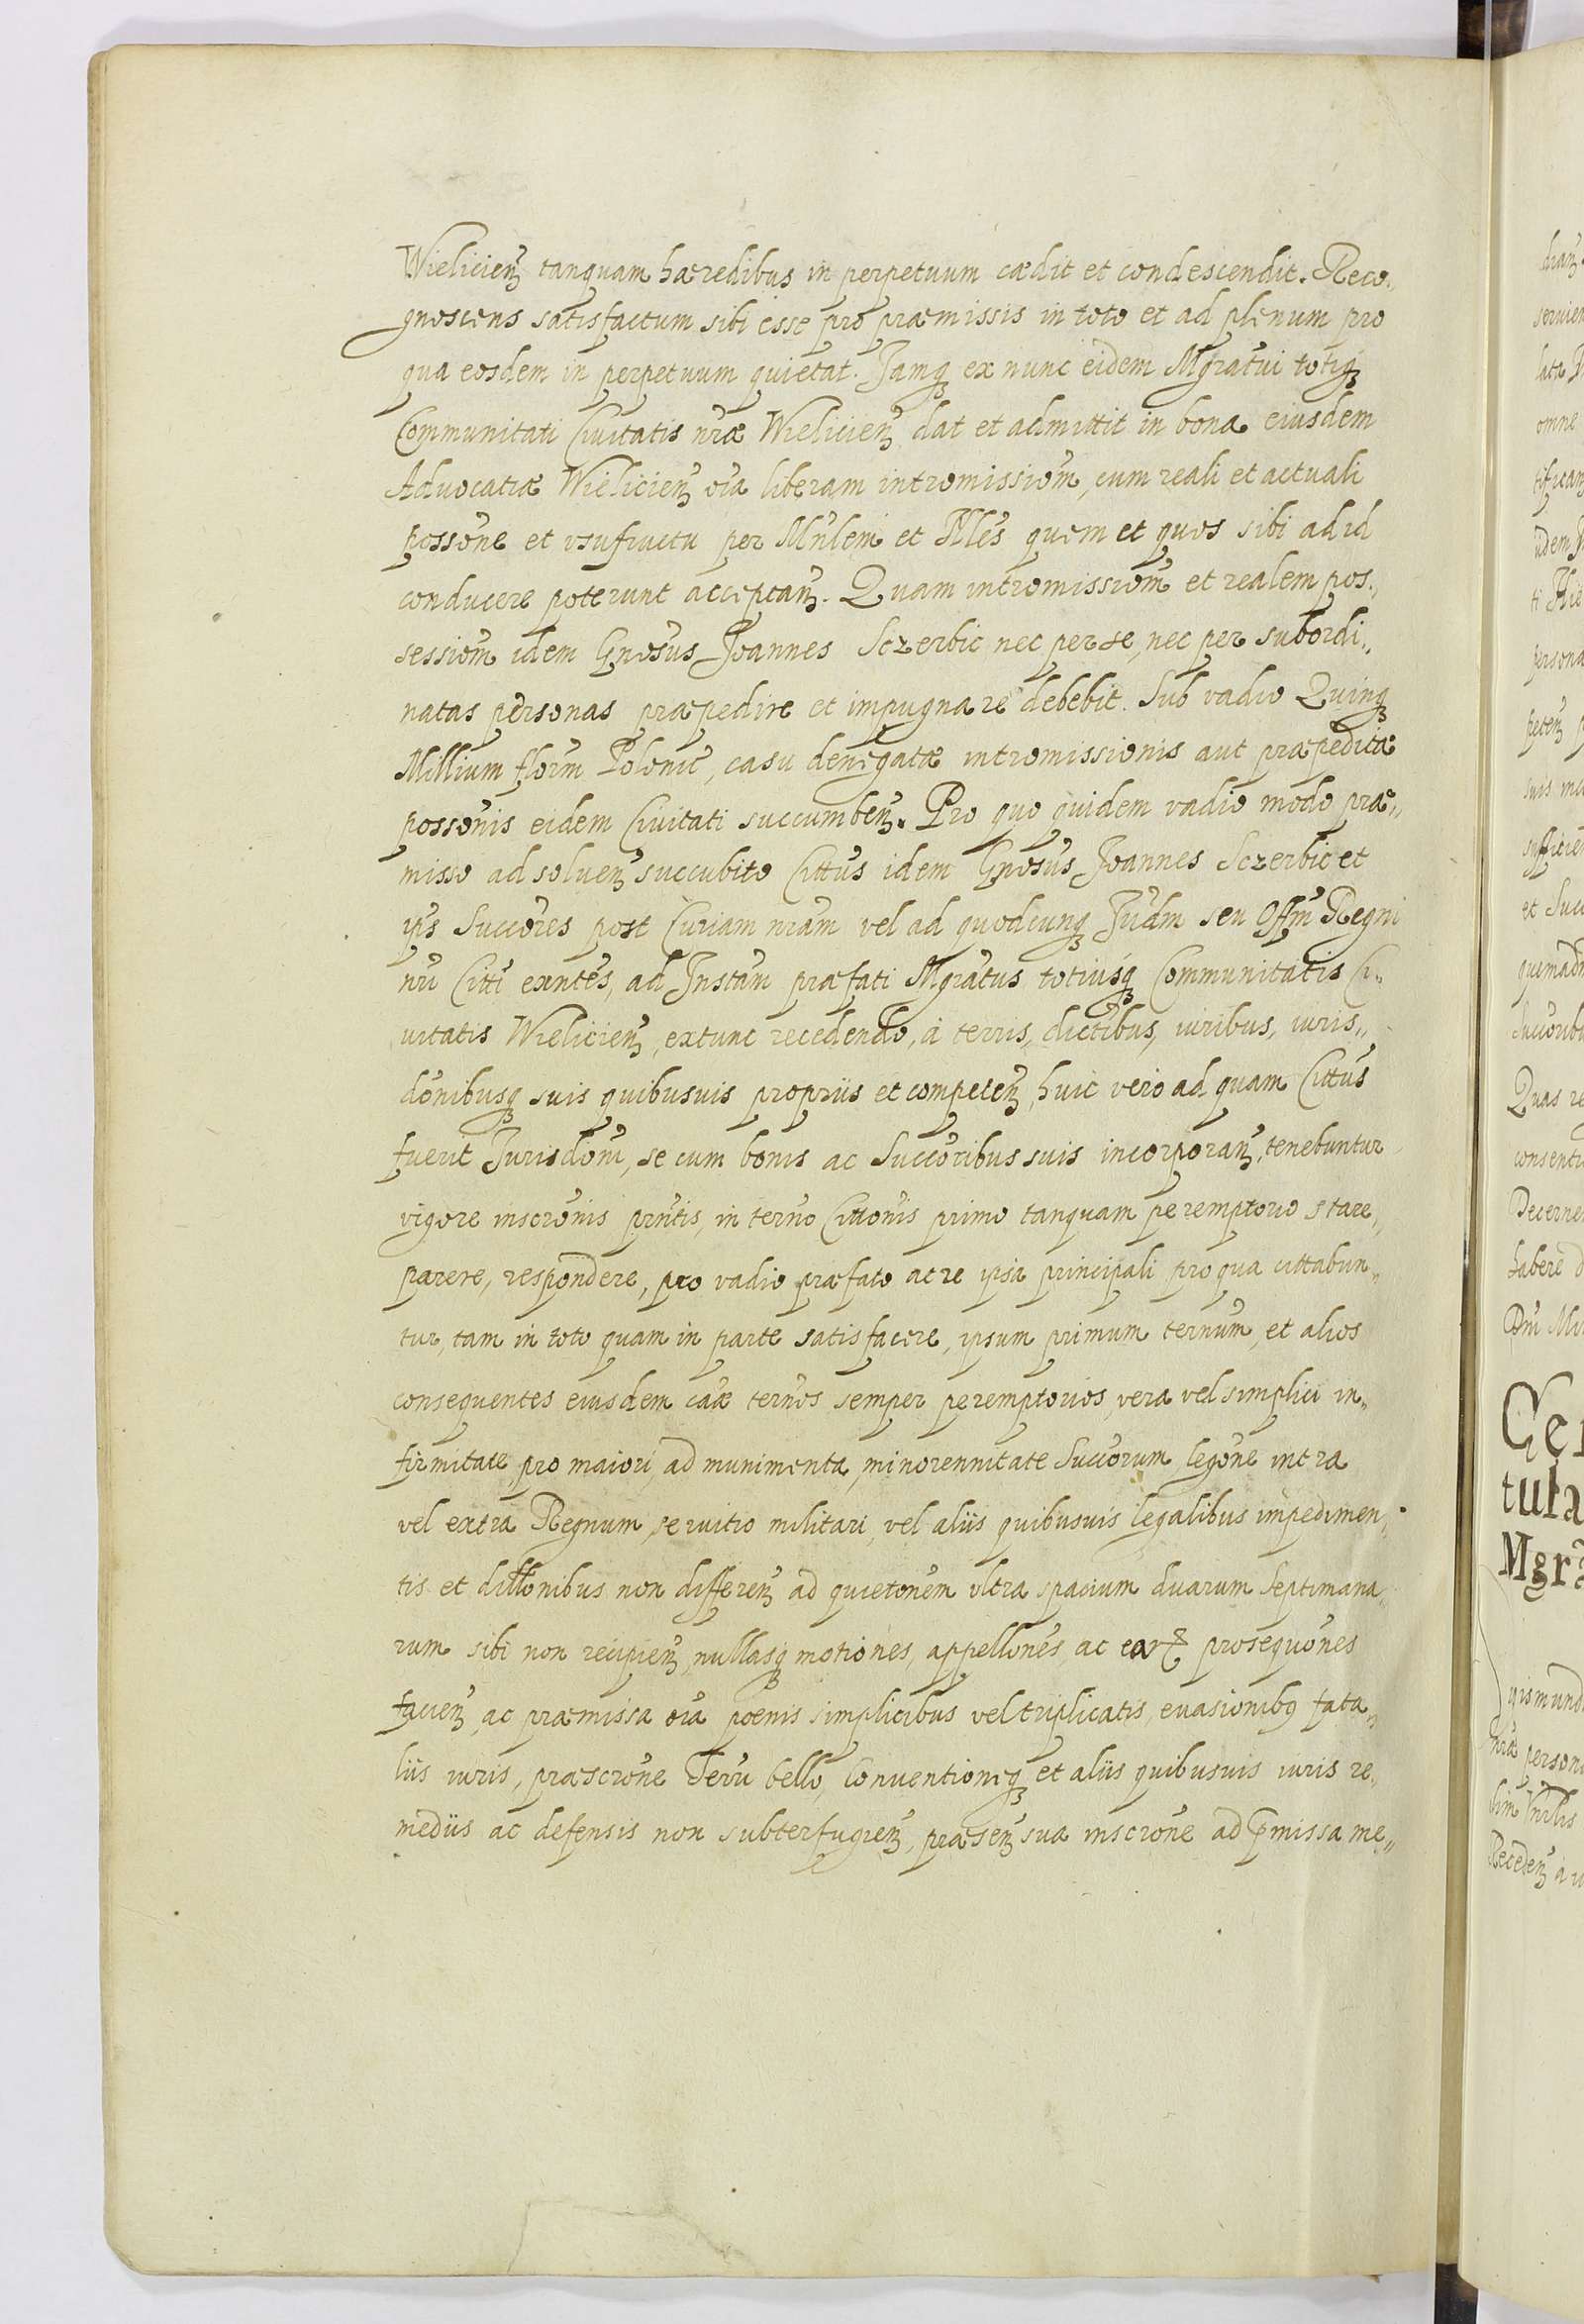 Wielicien̄ tanquam hæredibus in perpetuum cædit et condescendit. Reco„
gnoscens satisfactum sibi esse pro præmissis in toto et ad plenum pro
qua eosdem in perpetuum quietat. Jamqꝫ ex nunc eidem Mgratui totiqꝫ
Communitati Ciuitatis nr̃æ Wielicien̄ dat et admittit in bona eiusdem
Aduocatiæ Wielicien̄ oĩa liberam intromissiom̃, cum reali et actuali
possoñe et vsufructu per Mnl̃em et Nl̃es quem et quos sibi ad id
conducere poterunt acceptan̄. Quam intromissiom̃ et realem pos„
sessiom̃ idem Gnosũs Joannes Sczerbic nec per se, nec per subordi„
natas personas præpedire et impugnare debebit. Sub vadio Quinqꝫ
Millium florm̃ Polonic̃, casu denegatæ intromissionis aut præpeditæ
possoñis eidem Ciuitati succumben̄. Pro quo quidem vadio modo præ„
misso ad soluen̄ succubito Citt̃us idem Gnosũs Joannes Sczerbic et
ip̃s Succores̃ post Curiam nr̃am vel ad quodcunqꝫ Jud̃m seu Off̃m Regni
nr̃i Citt̃i exnt̃es, ad Inst̃am præfati Mgrat̃us totiusqꝫ Communitatis Ci„
uitatis Wielicien̄, extunc recedendo, à terris, dictibus̃, iuribus, iuris„
doñibusqꝫ suis quibusuis proprijs et competen̄, huic vero ad quam Citt̃us
fuerit Jurisdom̃, se cum bonis ac Succorĩbus suis incorporan̄, tenebuntur
vigore inscroñis prñtis, in terño Cittoñis primo tanquam peremptorio stare,
parere, respondere, pro vadio præfato ac re ipsa principali pro qua cittabun„
tur, tam in toto quam in parte satisfacere, ipsum primum terñum, et alios
consequentes eiusdem caũæ terños semper peremptorios, vera vel simplici in„
firmitate, pro maiori, ad munimenta, minorennitate Succorũm, legoñe intra
vel extra Regnum, seruitio militari, vel alijs quibusuis legalibus impedimen„
tis et dill̃onibus non differen̄ ad quietoñem vltra spacium duarum septimana„
rum sibi non recipien̄, nullasqꝫ motiones, appelloñes, ac earꝝ prosequoñes
facien̄, ac præmissa oĩa pœnis simplicibus vel triplicatis, euasionibꝰ fata„
lijs iuris, præscroñe Terr̃i bello, Conuentioneqꝫ et alijs quibusuis iuris re„
medijs ac defensis non subterfugien̄, præsen̄ sua inscroñe ad p̃missa me„